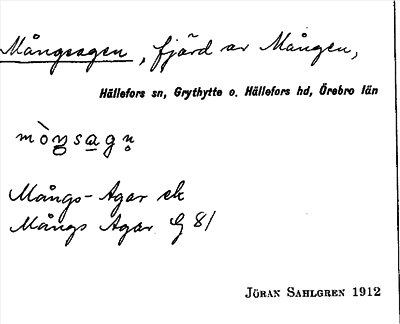 Mångsagen, fjärd av Mången,
Hällefors sn, Grythytte o. Hällefors hd, Örebro län
mòŋsagn̥
Mångs-Agar ek
Mångs Agar G 81
JÖRAN SAHLGREN 1912